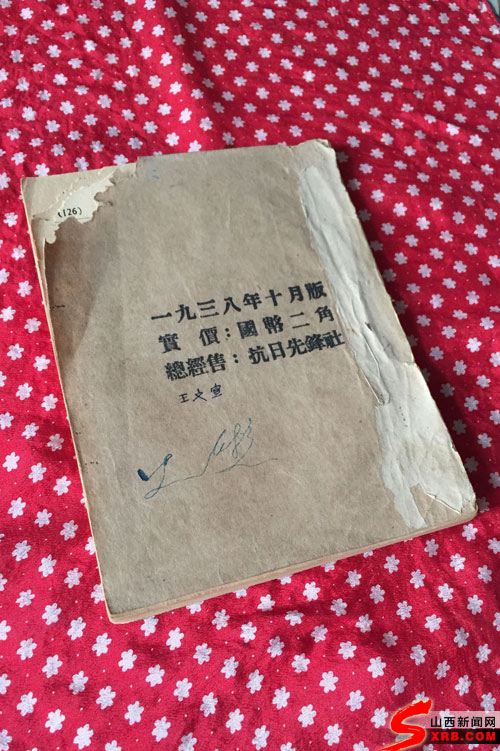 (126)
一九三八年十月版
實價：國幣二角
總經售：抗日先鋒社
王文宣
山西新闻网
SXRB.COM